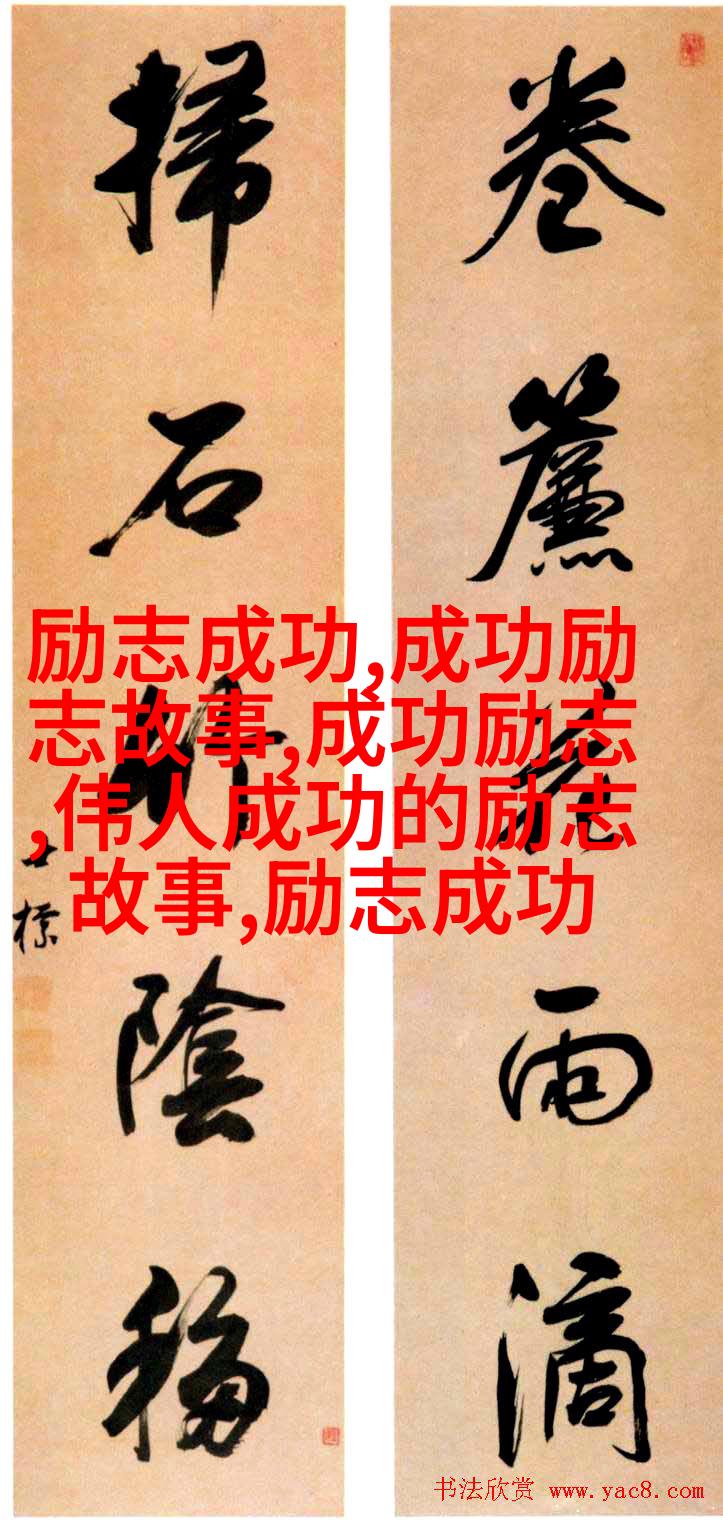 卷簾花雨滴
掃石竹陰移
士標
励志成功,成功励
志故事,成功励志
,伟人成功的励志
故事,励志成功
书法欣赏 www.yac8.com